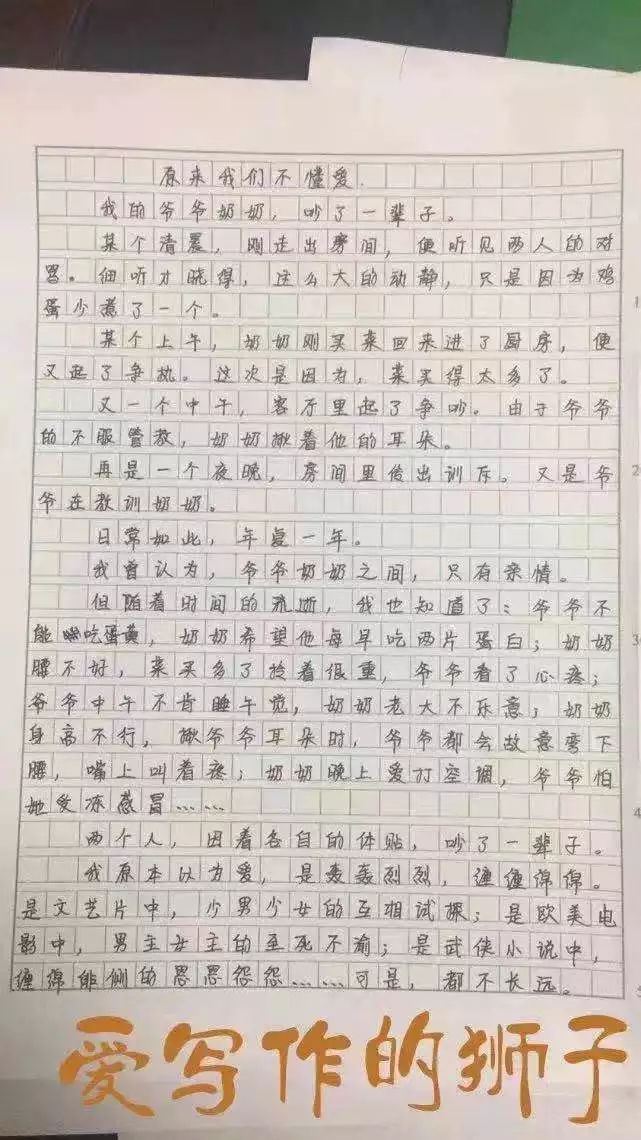 原来我们不懂爱.
我的爷爷奶奶，吵了一辈子。
某个清晨，刚走出房间，便听见两人的对
骂。细听才晓得，这么大的动静，只是因为鸡
蛋少煮了一个。
某个上午，奶奶刚买菜回来进了厨房，便
又起了争执。这次是因为，菜买得太多了。
又一个中午，客厅里起了争吵。由于爷爷
的不服管教，奶奶揪着他的耳朵。
再是一个夜晚，房间里传出训斥。又是爷
爷在教训奶奶。
日常如此，年复一年。
我曾认为，爷爷奶奶之间，只有亲情。
但随着时间的流逝，我也知道了：爷爷不
能吃蛋黄，奶奶希望他每早吃两片蛋白；奶奶
腰不好，菜买多了拎着很重，爷爷看了心疼；
爷爷中午不肯睡午觉，奶奶老大不乐意；奶奶
身高不行，揪爷爷耳朵时，爷爷都会故意弯下
腰，嘴上叫着疼；奶奶晚上爱打空调，爷爷怕
她受冻感冒……
两个人，因着各自的体贴，吵了一辈子。
我原本以为爱，是轰轰烈烈，缠缠绵绵。
是文艺片中，少男少女的互相试探；是欧美电
影中，男主女主的至死不渝；是武侠小说中，
缠绵悱恻的恩恩怨怨……可是，都不长远。
爱写作的狮子